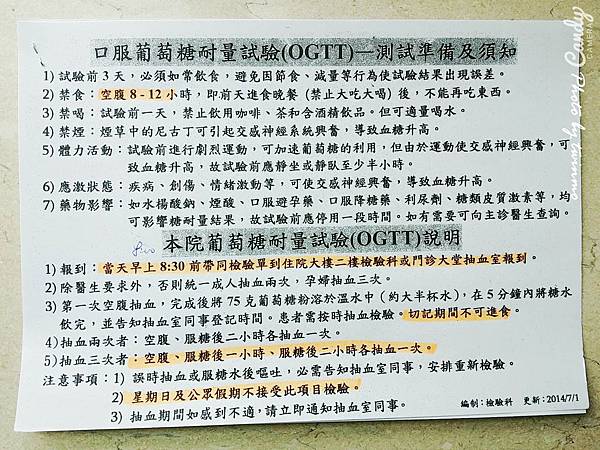 口服葡萄糖耐量試驗(OGTT)—測試準備及須知
1) 試驗前 3 天，必須如常飲食，避免因節食、減量等行為使試驗結果出現誤差。
2) 禁食：空腹 8 - 12 小時，即前天進食晚餐 (禁止大吃大喝) 後，不能再吃東西。
3) 禁喝：試驗前一天，禁止飲用咖啡、茶和含酒精飲品。但可適量喝水。
4) 禁煙：煙草中的尼古丁可引起交感神經系統興奮，導致血糖升高。
5) 體力活動：試驗前進行劇烈運動，可加速葡萄糖的利用，但由於運動使交感神經興奮，可
致血糖升高，故試驗前應靜坐或靜臥至少半小時。
6) 應激狀態：疾病、創傷、情緒激動等，可使交感神經興奮，導致血糖升高。
7) 藥物影響：如水楊酸鈉、煙酸、口服避孕藥、口服降糖藥、利尿劑、糖類皮質激素等，均
可影響糖耐量結果，故試驗前應停用一段時間。如有需要可向主診醫生查詢。
本院葡萄糖耐量試驗(OGTT)說明
1) 報到：當天早上 8:30 前帶同檢驗單到住院大樓二樓檢驗科或門診大堂抽血室報到。
2) 除醫生要求外，否則統一成人抽血兩次，孕婦抽血三次。
3) 第一次空腹抽血，完成後將 75 克葡萄糖粉溶於溫水中（約大半杯水），在 5 分鐘內將糖水
飲完，並告知抽血室同事登記時間。患者需按時抽血檢驗。切記期間不可進食。
4) 抽血兩次者：空腹、服糖後二小時各抽血一次。
5) 抽血三次者：空腹、服糖後一小時、服糖後二小時各抽血一次。
注意事項：1) 誤時抽血或服糖水後嘔吐，必需告知抽血室同事，安排重新檢驗。
2) 星期日及公眾假期不接受此項目檢驗。
3) 抽血期間如感到不適，請立即通知抽血室同事。
編制：檢驗科 更新：2014/7/1
Candy
CAMERA